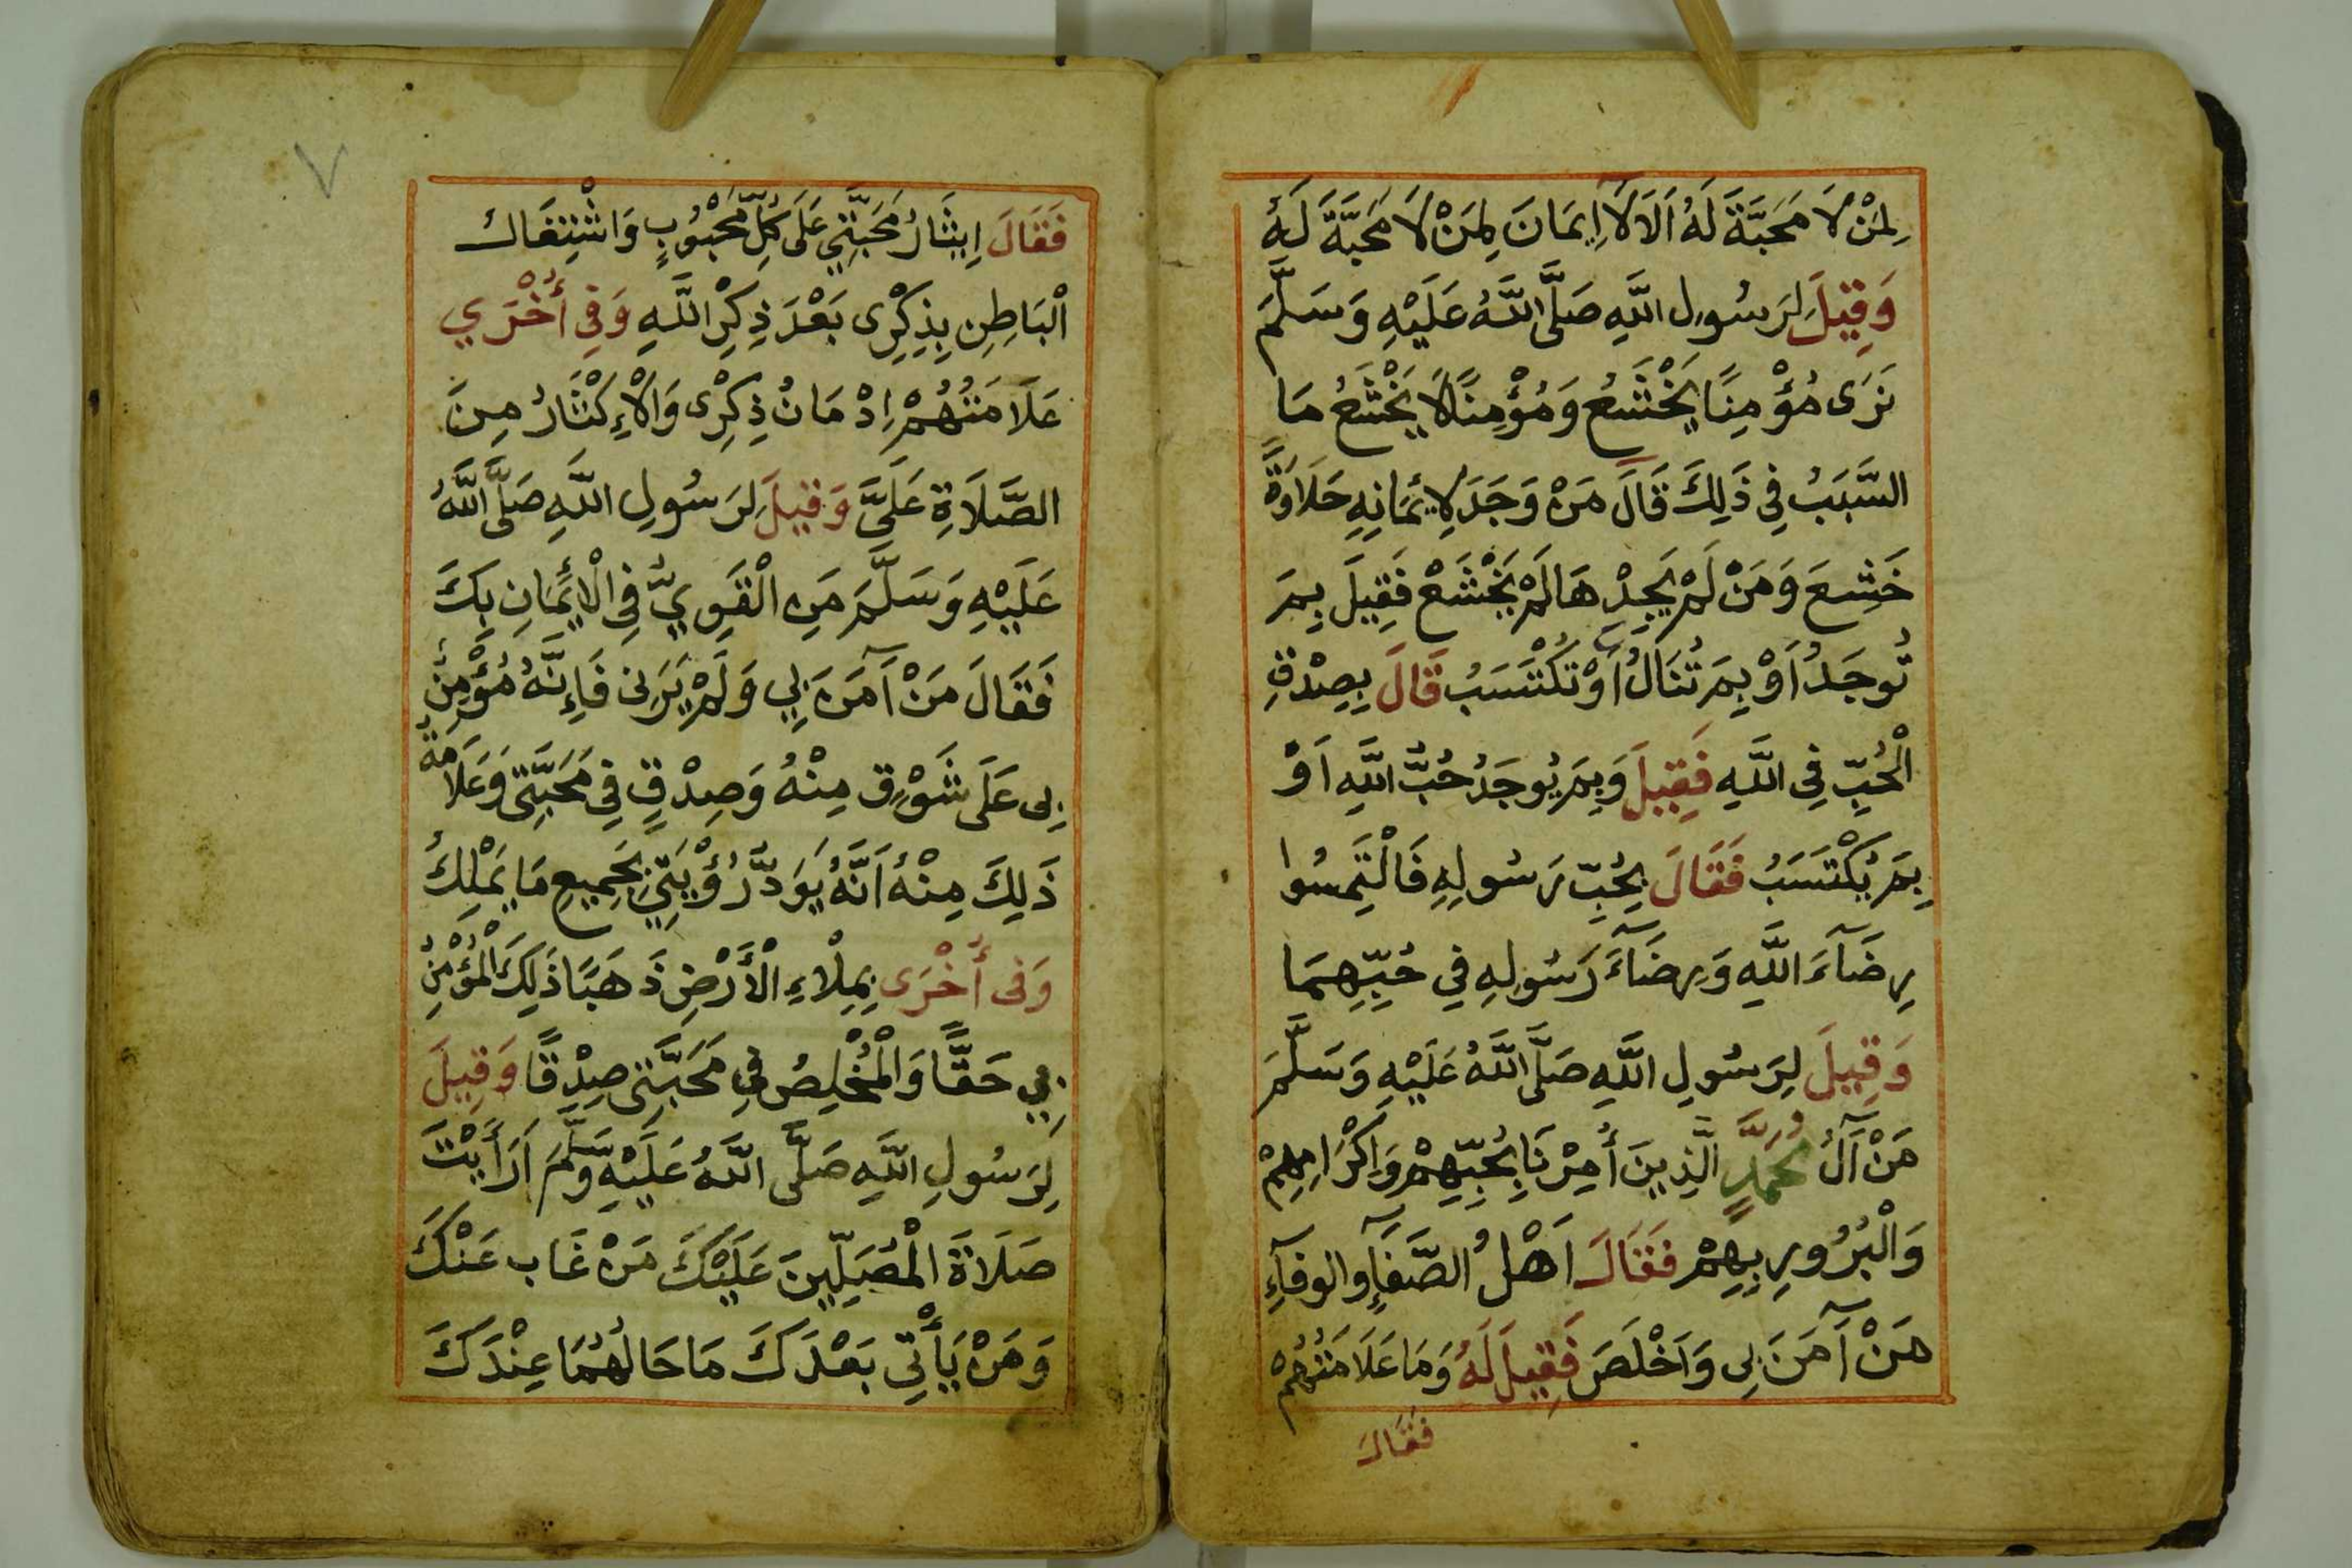 لِمَنْ لَا مَحَبَّةَ لَهُ اَلَا لَا اِيمَانَ لِمَنْ لَا مَحَبَّةَ لَهُ
وَقِيلَ لِرَسُولِ اللَّهِ صَلَّى اللَّهُ عَلَيْهِ وَسَلَّمَ
نَرَى مُؤْمِنًا يَخْشَعُ وَمُؤْمِنًا لَا يَخْشَعُ مَا
السَّبَبُ فِي ذَلِكَ قَالَ مَنْ وَجَدَ لِإِيمَانِهِ حَلَاوَةً
خَشِعَ وَمَنْ لَمْ يَجِدْهَا لَمْ يَخْشَعْ فَقِيلَ بِمَ
تُوجَدُ اَوْ بِمَ تُنَالُ اَوْ تُكْتَسَبُ قَالَ بِصِدْقِ
الْحُبِّ فِي اللَّهِ فَقِيلَ وَبِمَ يُوجَدُ حُبُّ اللَّهِ اَوْ
بِمَ يُكْتَسَبُ فَقَالَ بِحُبِّ رَسُولِهِ فَالْتَمِسُوا
رِضَآءَ اللَّهِ وَرِضَآءَ رَسُولِهِ فِي حُبِّهِمَا
وَقِيلَ لِرَسُولِ اللَّهِ صَلَّى اللَّهُ عَلَيْهِ وَسَلَّمَ
مَنْ آلُ مُحَمَّدٍ الَّذِينَ أُمِرْنَا بِحُبِّهِمْ وَاكْرَامِهِمْ
وَالْبُرُورِ بِهِمْ فَقَالَ اَهْلُ الصَّفَآءِ وَالوفَآءِ
مَنْ آمَنَ بِى وَاَخْلَصَ فَقِيلَ لَهُ وَمَا عَلَامَتُهُمْ
فَقَالَ
٧
فَقَالَ اِيثَارُ مَحَبَّتِي عَلَى كُلِّ مَحْبُوبٍ وَاشْتِغَالُ
الْبَاطِنِ بِذِكْرِى بَعْدَ ذِكْرِ اللَّهِ وَفِي أُخْرَي
عَلَامَتُهُمْ اِدْمَانُ ذِكْرِى وَالْاِكْثَارُ مِنَ
الصَّلَاةِ عَلَيَّ وَقِيلَ لِرَسُولِ اللَّهِ صَلَّى اللَّهُ
عَلَيْهِ وَسَلَّمَ مَنِ الْقَوِيُّ فِي الْإِيمَانِ بِكَ
فَقَالَ مَنْ آمَنَ بِي وَلَمْ يَرَنِى فَاِنَّهُ مُؤْمِنٌ
بِى عَلَى شَوْقٍ مِنْهُ وَصِدْقٍ فِي مَحَبَّتِى وَعَلَامَةُ
ذَلِكَ مِنْهُ اَنَّهُ يَوَدُّ رُؤْيَتِي بِجَمِيعِ مَا يَمْلِكُ
وَفِى أُخْرَى بِمِلْاءِ الْأَرْضِ ذَهَبًا ذَلِكَ الْمُؤْمِنُ
بِي حَقًّا وَالْمُخْلِصُ فِي مَحَبَّتِى صِدْقًا وَقِيلَ
لِرَسُولِ اللَّهِ صَلَّى اللَّهُ عَلَيْهِ وَسَلَّمَ اَرَأَيْتَ
صَلَاةَ الْمُصَلِّينَ عَلَيْكَ مَنْ غَابَ عَنْكَ
وَمَنْ يَأْتِي بَعْدَكَ مَا حَالُهُمَا عِنْدَكَ